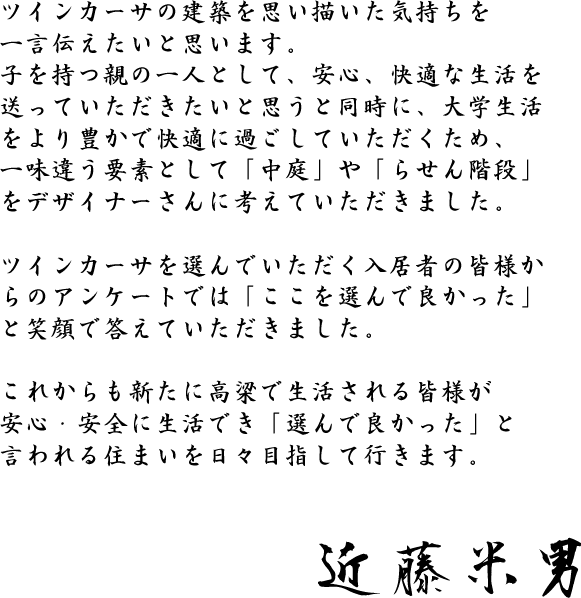 ツインカーサの建築を思い描いた気持ちを
一言伝えたいと思います。
子を持つ親の一人として、安心、快適な生活を
送っていただきたいと思うと同時に、大学生活
をより豊かで快適に過ごしていただくため、
一味違う要素として「中庭」や「らせん階段」
をデザイナーさんに考えていただきました。
ツインカーサを選んでいただく入居者の皆様か
らのアンケートでは「ここを選んで良かった」
と笑顔で答えていただきました。
これからも新たに高梁で生活される皆様が
安心・安全に生活でき「選んで良かった」と
言われる住まいを日々目指して行きます。
近藤米男